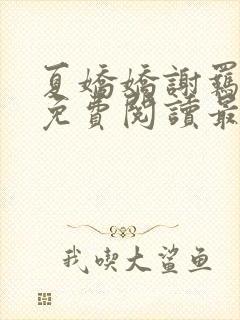 夏嬌嬌謝羈
免費閱讀最
我喫大鯊鱼